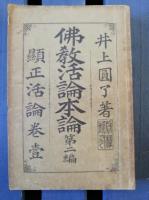 井上圓了著
佛教活論本論 第二編
顯正活論卷壹